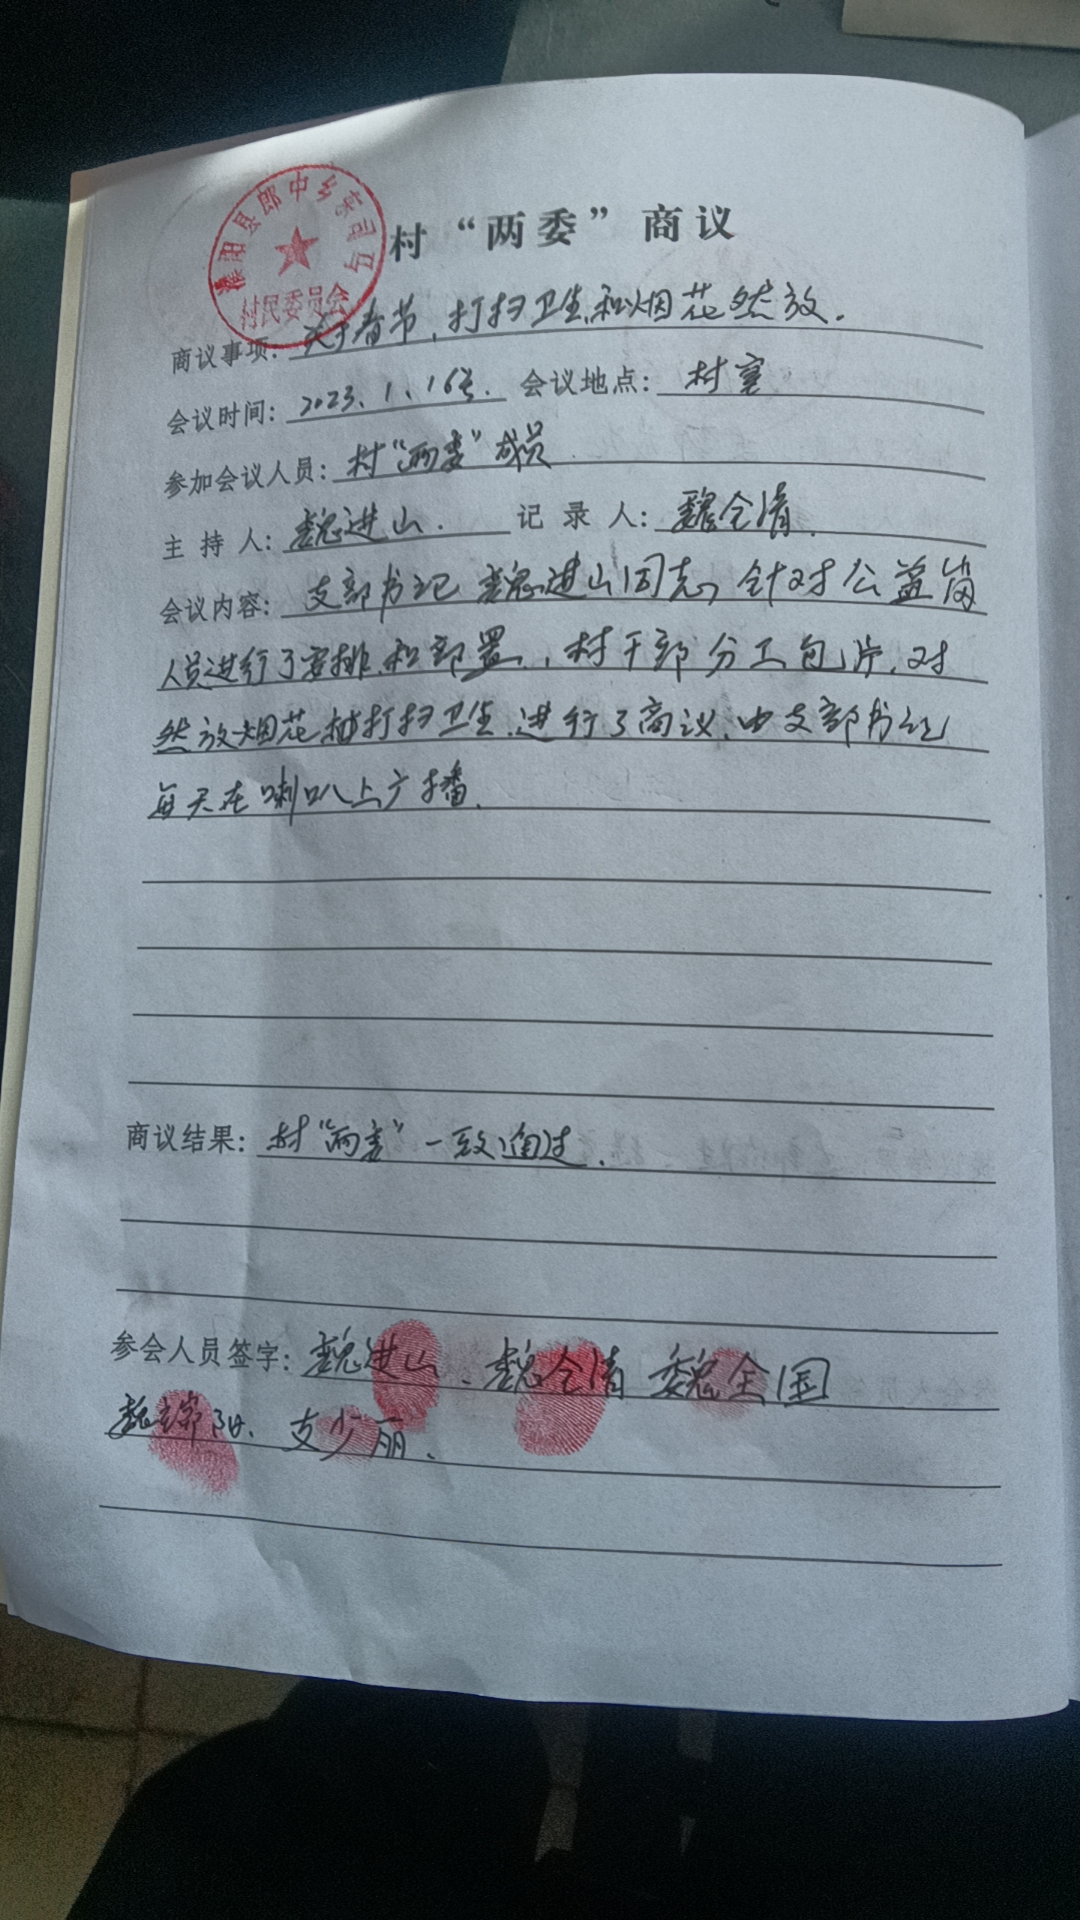 濮阳县郎中乡东司马
村民委员会
村“两委”商议
商议事项：关于春节，打扫卫生和烟花然放.
会议时间：2023.1.16号. 会议地点：村室
参加会议人员：村“两委”成员
主持人：魏进山. 记录人：魏全清.
会议内容：支部书记魏进山同志，针对公益岗
人员进行了安排和部署，村干部分工包片，对
然放烟花 打扫卫生，进行了商议，由支部书记
每天在喇叭上广播.
商议结果：村“两委”一致通过.
参会人员签字：魏进山、魏全清 魏全国
魏 阳. 支少丽.